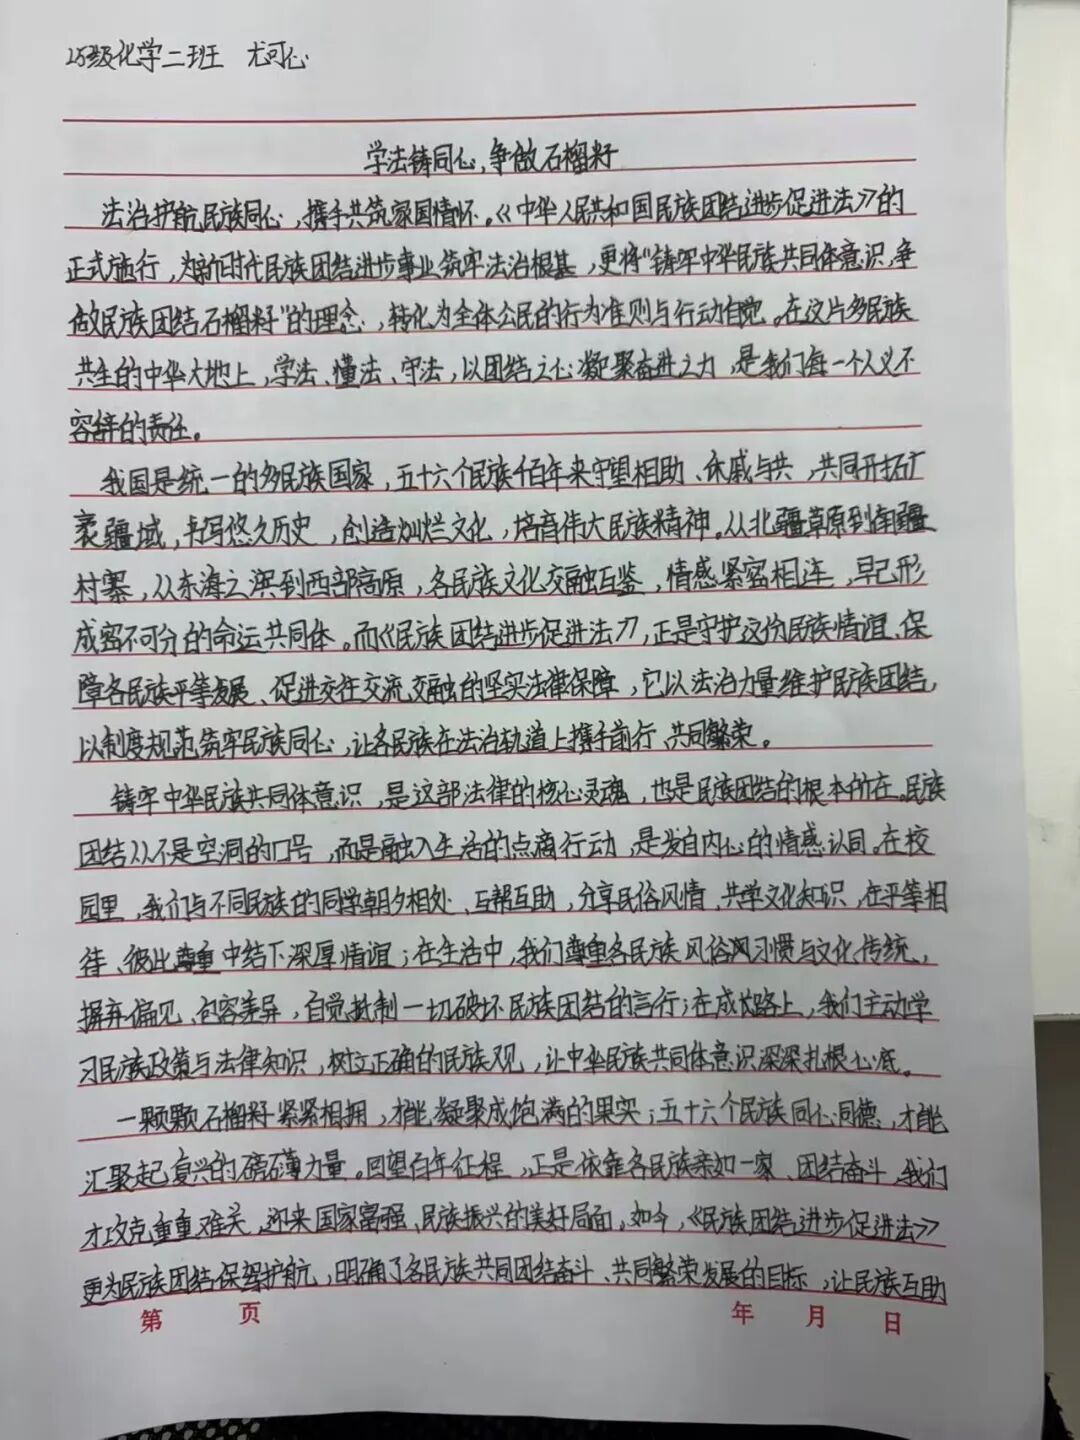 25级化学二班 尤可心
学法铸同心,争做石榴籽
法治护航民族同心,携手共筑家国情怀。《中华人民共和国民族团结进步促进法》的
正式施行,为新时代民族团结进步事业筑牢法治根基,更将“铸牢中华民族共同体意识,争
做民族团结石榴籽”的理念,转化为全体公民的行为准则与行动自觉。在这片多民族
共生的中华大地上,学法、懂法、守法,以团结之心凝聚奋进之力,是我们每一个人义不
容辞的责任。
我国是统一的多民族国家,五十六个民族千百年来守望相助、休戚与共,共同开拓广
袤疆域,书写悠久历史,创造灿烂文化,培育伟大民族精神。从北疆草原到南疆
村寨,从东海之滨到西部高原,各民族文化交融互鉴,情感紧密相连,早已形
成密不可分的命运共同体。而《民族团结进步促进法》,正是守护这份民族情谊、保
障各民族平等发展、促进交往交流交融的坚实法律保障,它以法治力量维护民族团结,
以制度规范筑牢民族同心,让各民族在法治轨道上携手前行,共同繁荣。
铸牢中华民族共同体意识,是这部法律的核心灵魂,也是民族团结的根本所在。民族
团结从不是空洞的口号,而是融入生活的点滴行动,是发自内心的情感认同。在校
园里,我们与不同民族的同学朝夕相处、互帮互助,分享民俗风情,共学文化知识,在平等相
待、彼此尊重中结下深厚情谊;在生活中,我们尊重各民族风俗风习惯与文化传统,
摒弃偏见、包容差异,自觉抵制一切破坏民族团结的言行;在成长路上,我们主动学
习民族政策与法律知识,树立正确的民族观,让中华民族共同体意识深深扎根心底。
一颗颗石榴籽紧紧相拥,才能凝聚成饱满的果实;五十六个民族同心同德,才能
汇聚起复兴的磅礴力量。回望百年征程,正是依靠各民族亲如一家、团结奋斗,我们
才攻克重重难关,迎来国家富强、民族振兴的美好局面,如今,《民族团结进步促进法》
更为民族团结保驾护航,明确了各民族共同团结奋斗、共同繁荣发展的目标,让民族互助
第 页 年 月 日